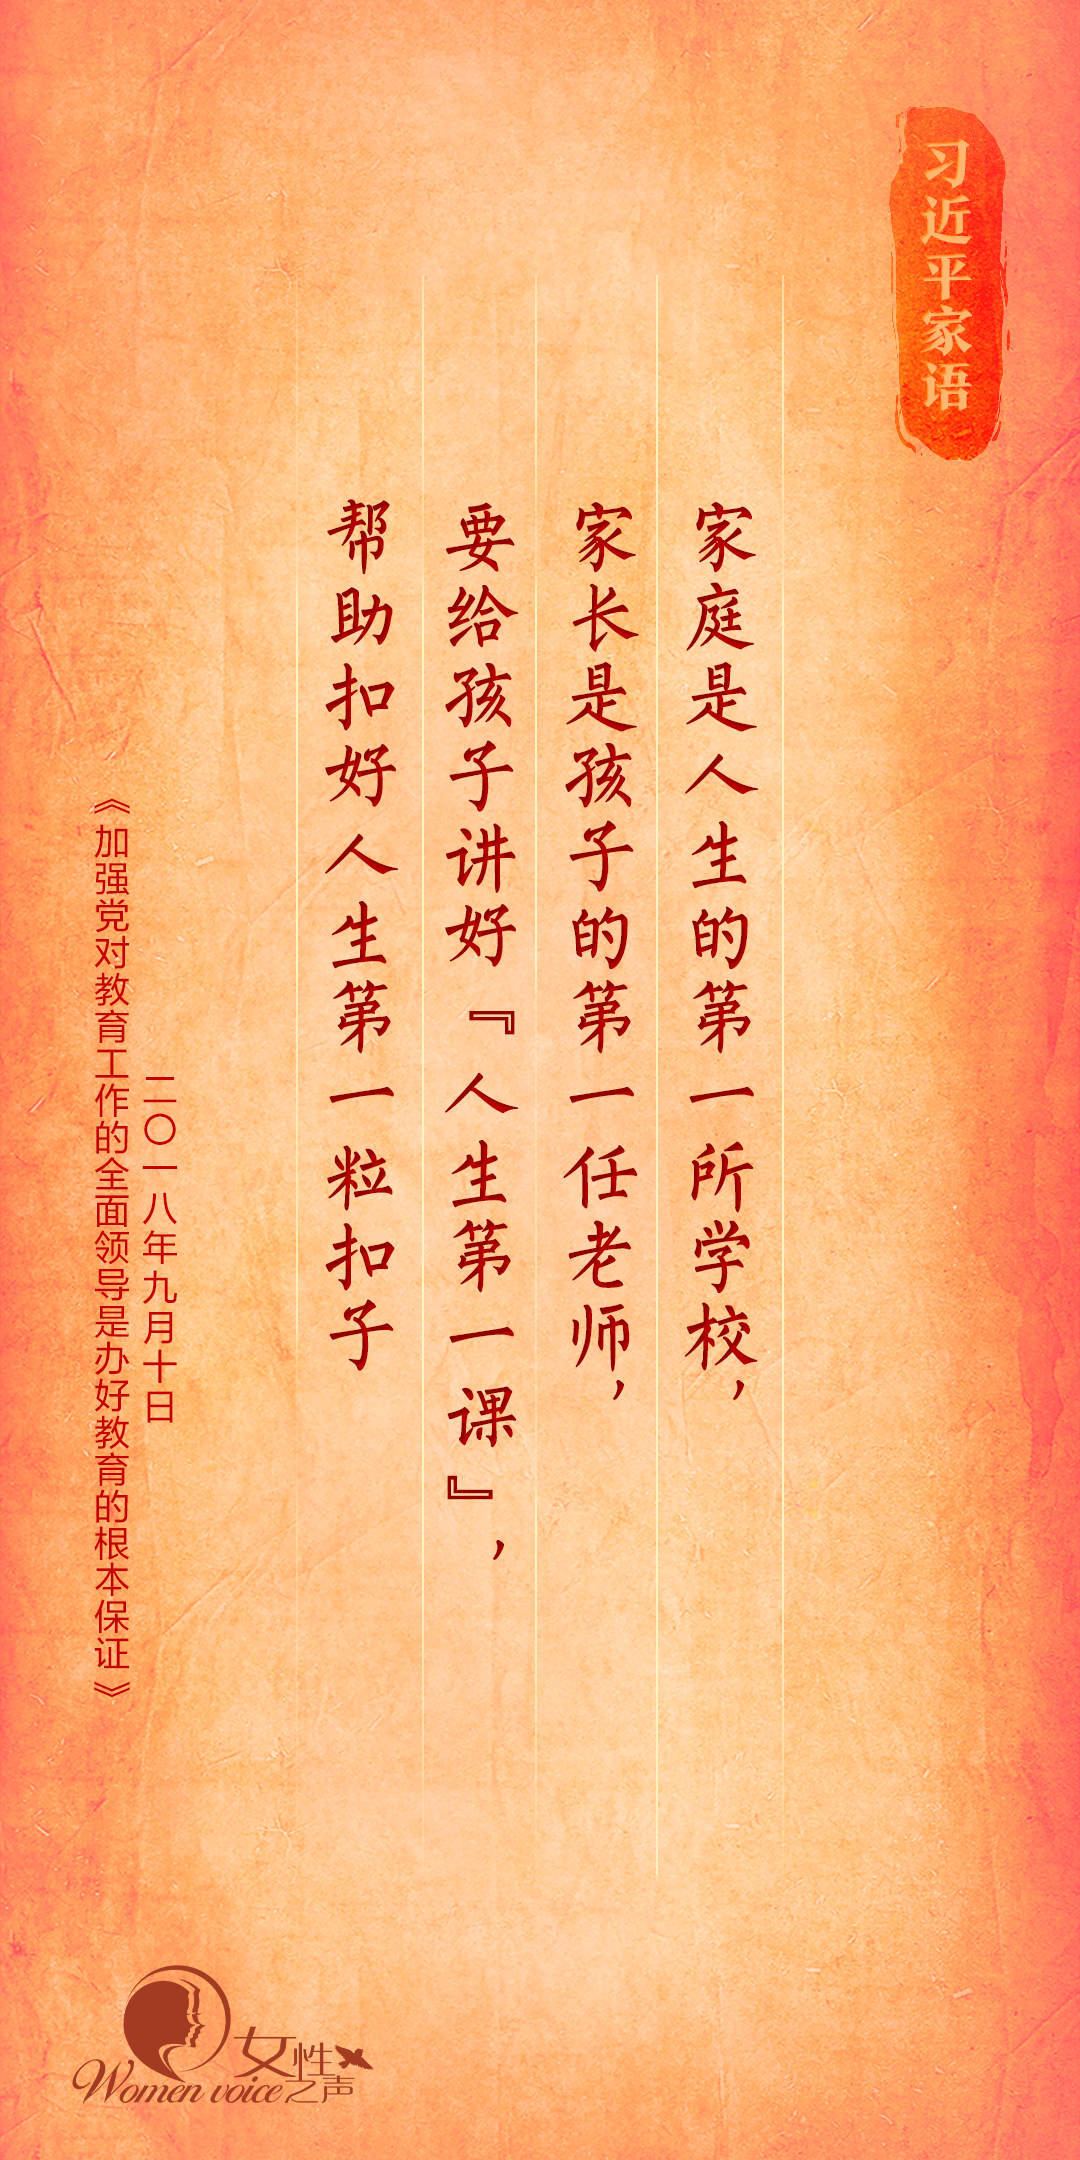 习近平家语
家庭是人生的第一所学校，
家长是孩子的第一任老师，
要给孩子讲好『人生第一课』，
帮助扣好人生第一粒扣子
二〇一八年九月十日
《加强党对教育工作的全面领导是办好教育的根本保证》
女性之声
Women voice